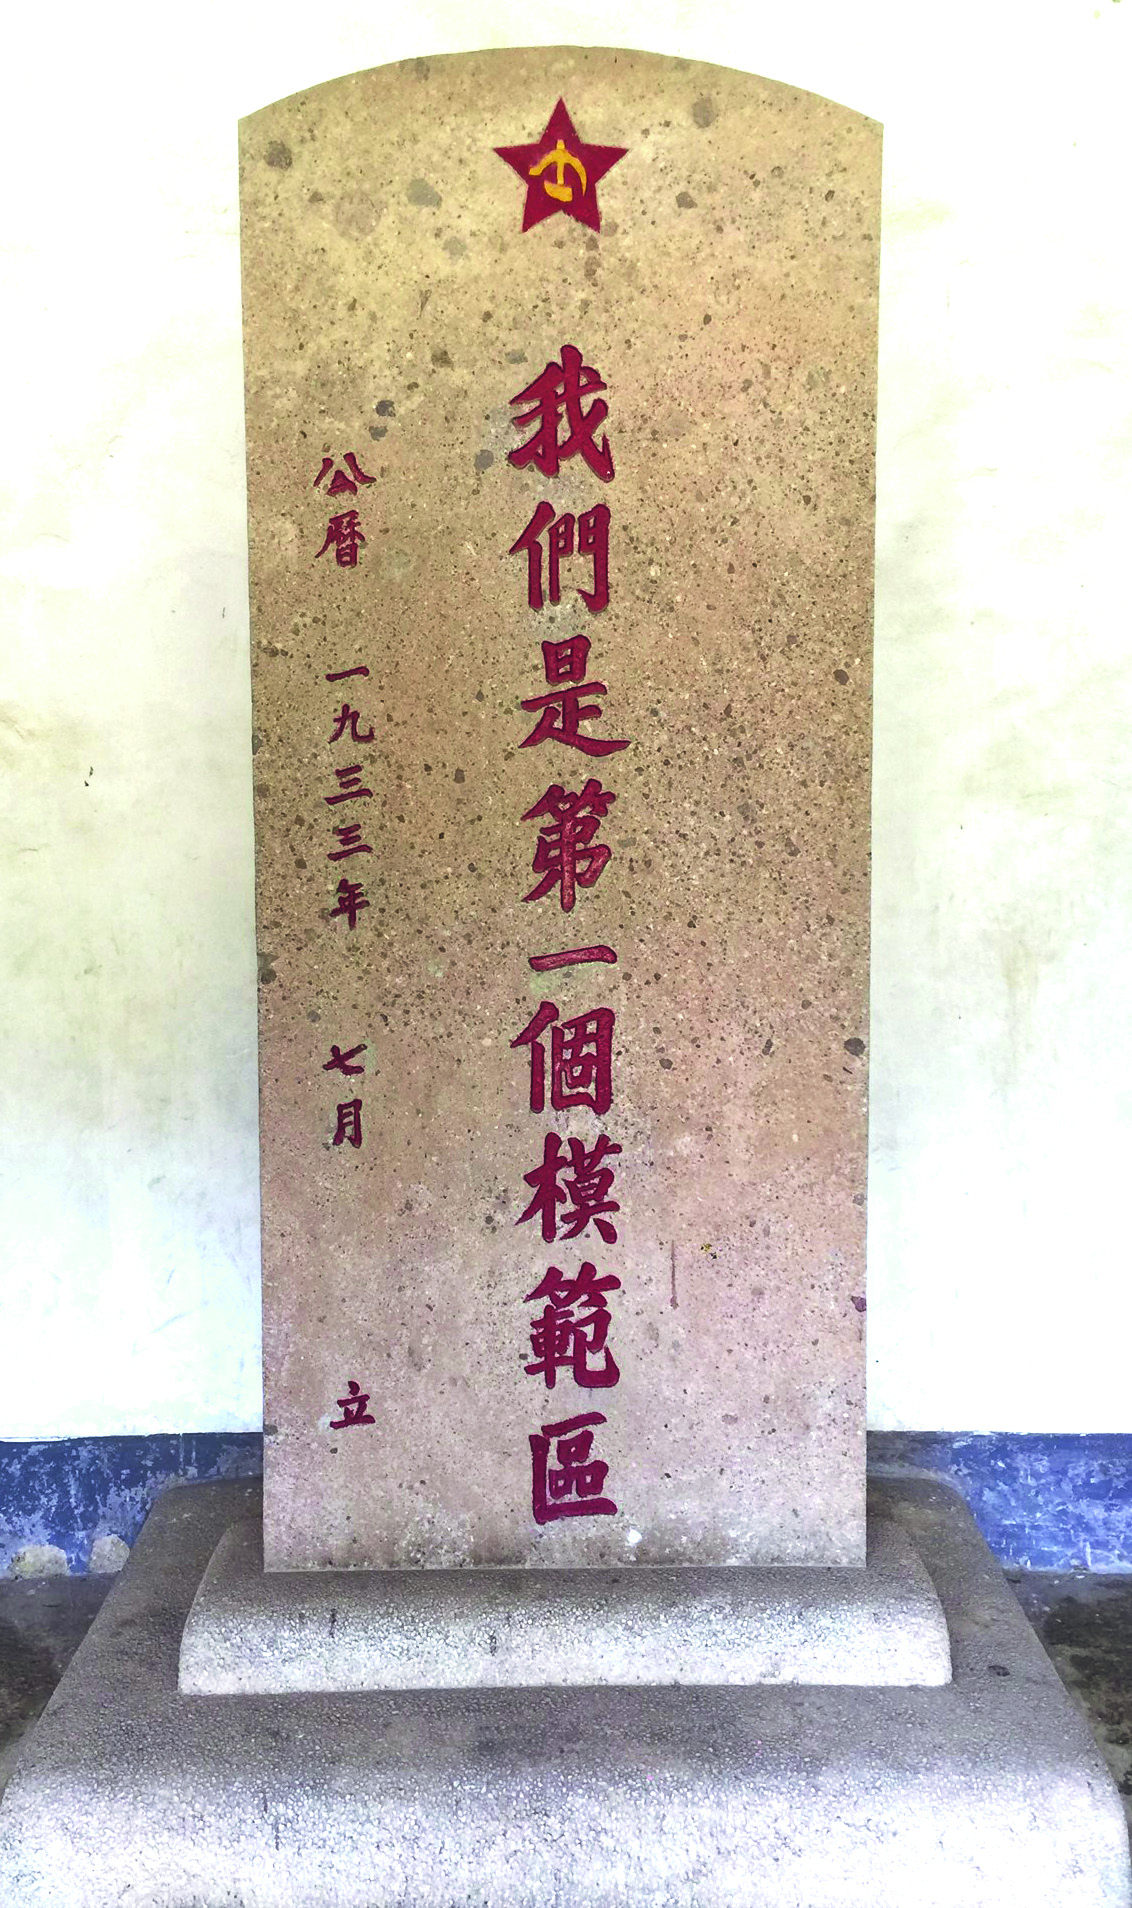 我們是第一個模範區
公曆 一九三三年 七月 立